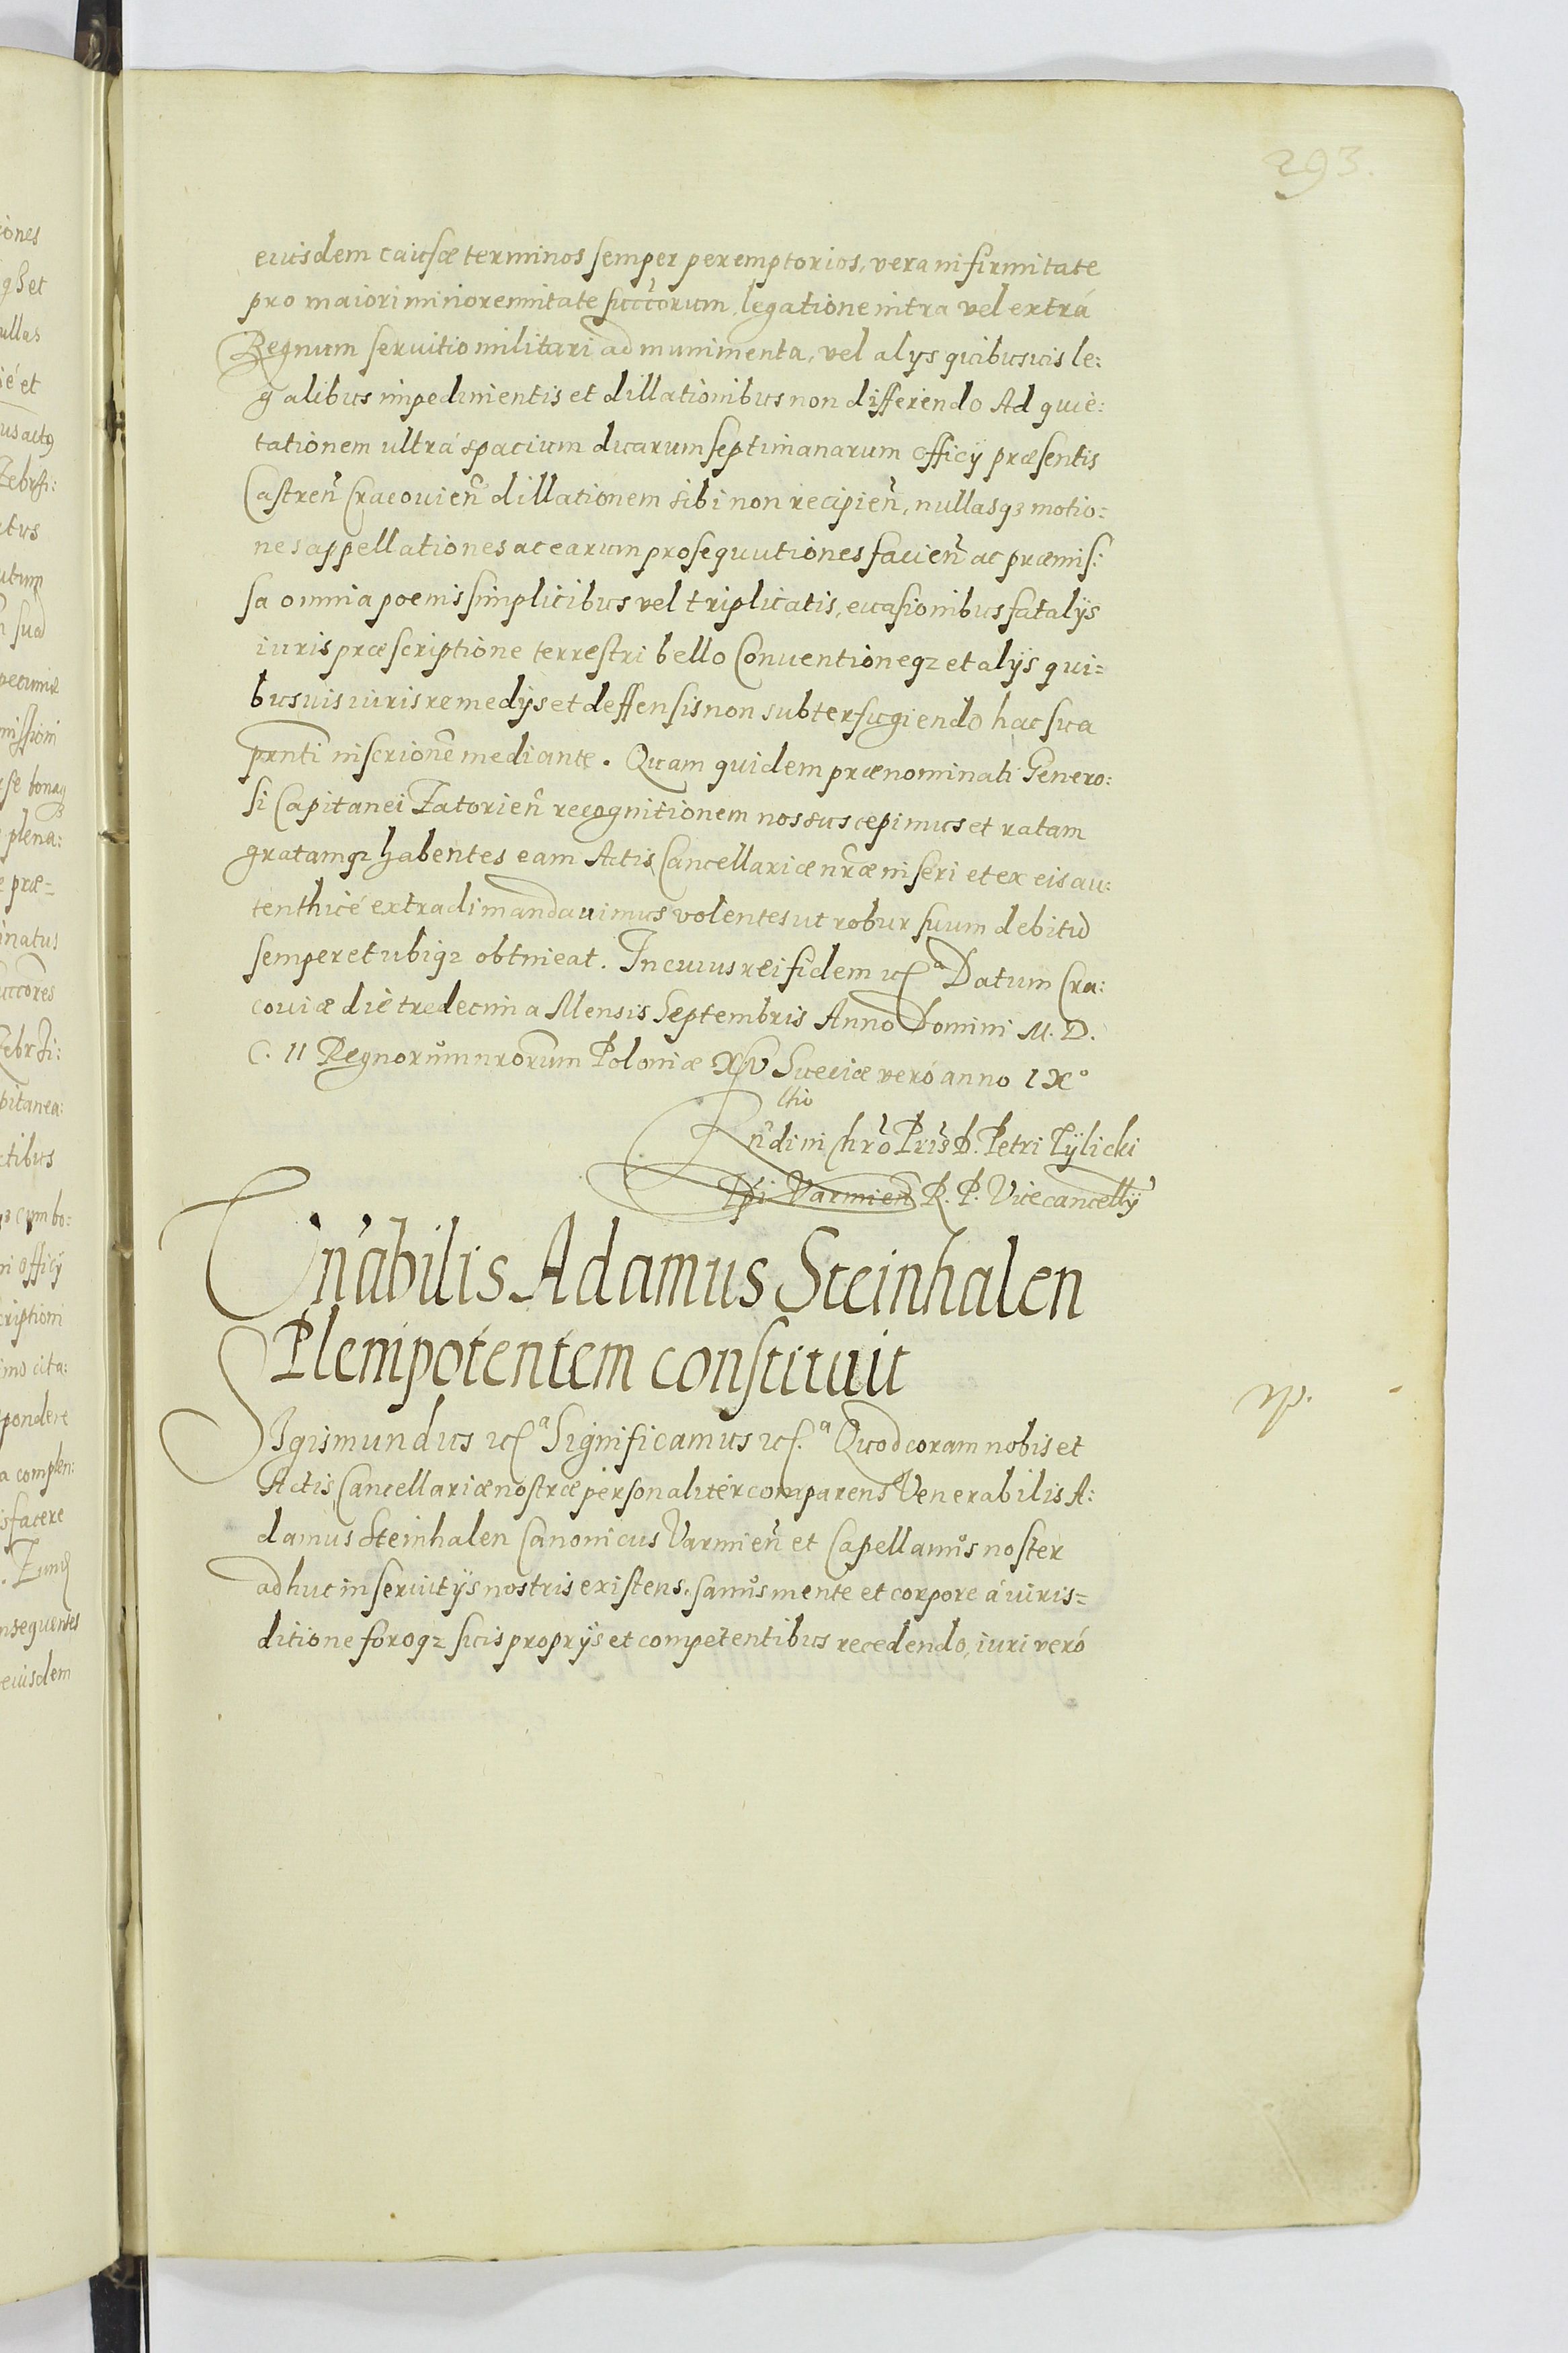 293.
eiusdem causæ terminos semper peremptorios, vera infirmitate
pro maiori minorennitate succorum, legatione intra vel extrá
Regnum seruitio militari ad munimenta, vel alijs quibusuis le:
galibus impedimentis et dillationibus non differendo Ad quie:
tationem ultrá spacium duarum septimanarum officij præsentis
Castren̄ Cracouien̄ dillationem sibi non recipien̄, nullasqꝫ motio:
nes appellationes ac earum prosequutiones facien̄ ac præmis:
sa omnia poenis simplicibus vel triplicatis, euasionibus fatalijs
iuris præscriptione terrestri bello Conuentioneqꝫ et alijs qui=
busuis iuris remedijs et deffensis non subterfugiendo hac sua
prnti inscrione mediante. Quam quidem prænominati Genero:
si Capitanei Zatorien̄ recognitionem nos suscepimus et ratam
gratamqꝫ habentes eam Actis Cancellariæ nræ inseri et ex eis au:
tenthicé extradi mandauimus volentes ut robur suum debitū
semper et ubiqꝫ obtineat. In cuius rei fidem ꝛcᵃ Datum Cra:
couiæ die tredecima Mensis Septembris Anno Domini M. D.
C. II Regnorum nrorum Poloniæ XV Sueciæ veró anno IX°
Rndi in Chro Pris D. Petri Tylicki
Epi Varmien̄ R. P. Vicecancellij
Vn̄abilis Adamus Steinhalen
Plenipotentem constituit
Sigismundus ꝛcᵃ Significamus ꝛc.ᵃ Quod coram nobis et
Actis Cancellariæ nostræ personaliter comparens Venerabilis A:
damus Steinhalen Canonicus Varmien̄ et Capellanus noster
adhuc in seruitijs nostris existens. sanus mente et corpore á iuris=
ditione foroqꝫ suis proprijs et competentibus recedendo, iuri veró